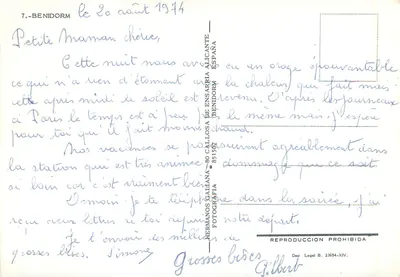 7.-BENIDORM
le 20 août 1974
Petite Maman chérie,
Cette nuit nous avons eu un orage épouvantable
ce qui n'a rien d'étonnant vu la chaleur qu'il fait mais
cette après midi le soleil est revenu. D'après les journeaux
à Paris le temps est à peu près le même mais j'espère
pour toi qu'il fait moins chaud.
Nos vacances se poursuivent agréablement dans
la station qui est très animée dommage que ce soit
si loin car c'est vraiment bien
Demain je te téléphone dans la soirée, j'ai
reçu deux lettres de toi depuis notre départ.
Je t'envoie les meilleurs
grosses bises. Simone
Grosses bises
Gilbert
HERMANOS GALIANA - 80 CALLOSA DE ENSARRIA ALICANTE
FOTOGRAFIA 851502 ESPAÑA
REPRODUCCION PROHIBIDA
Dep Legal B.